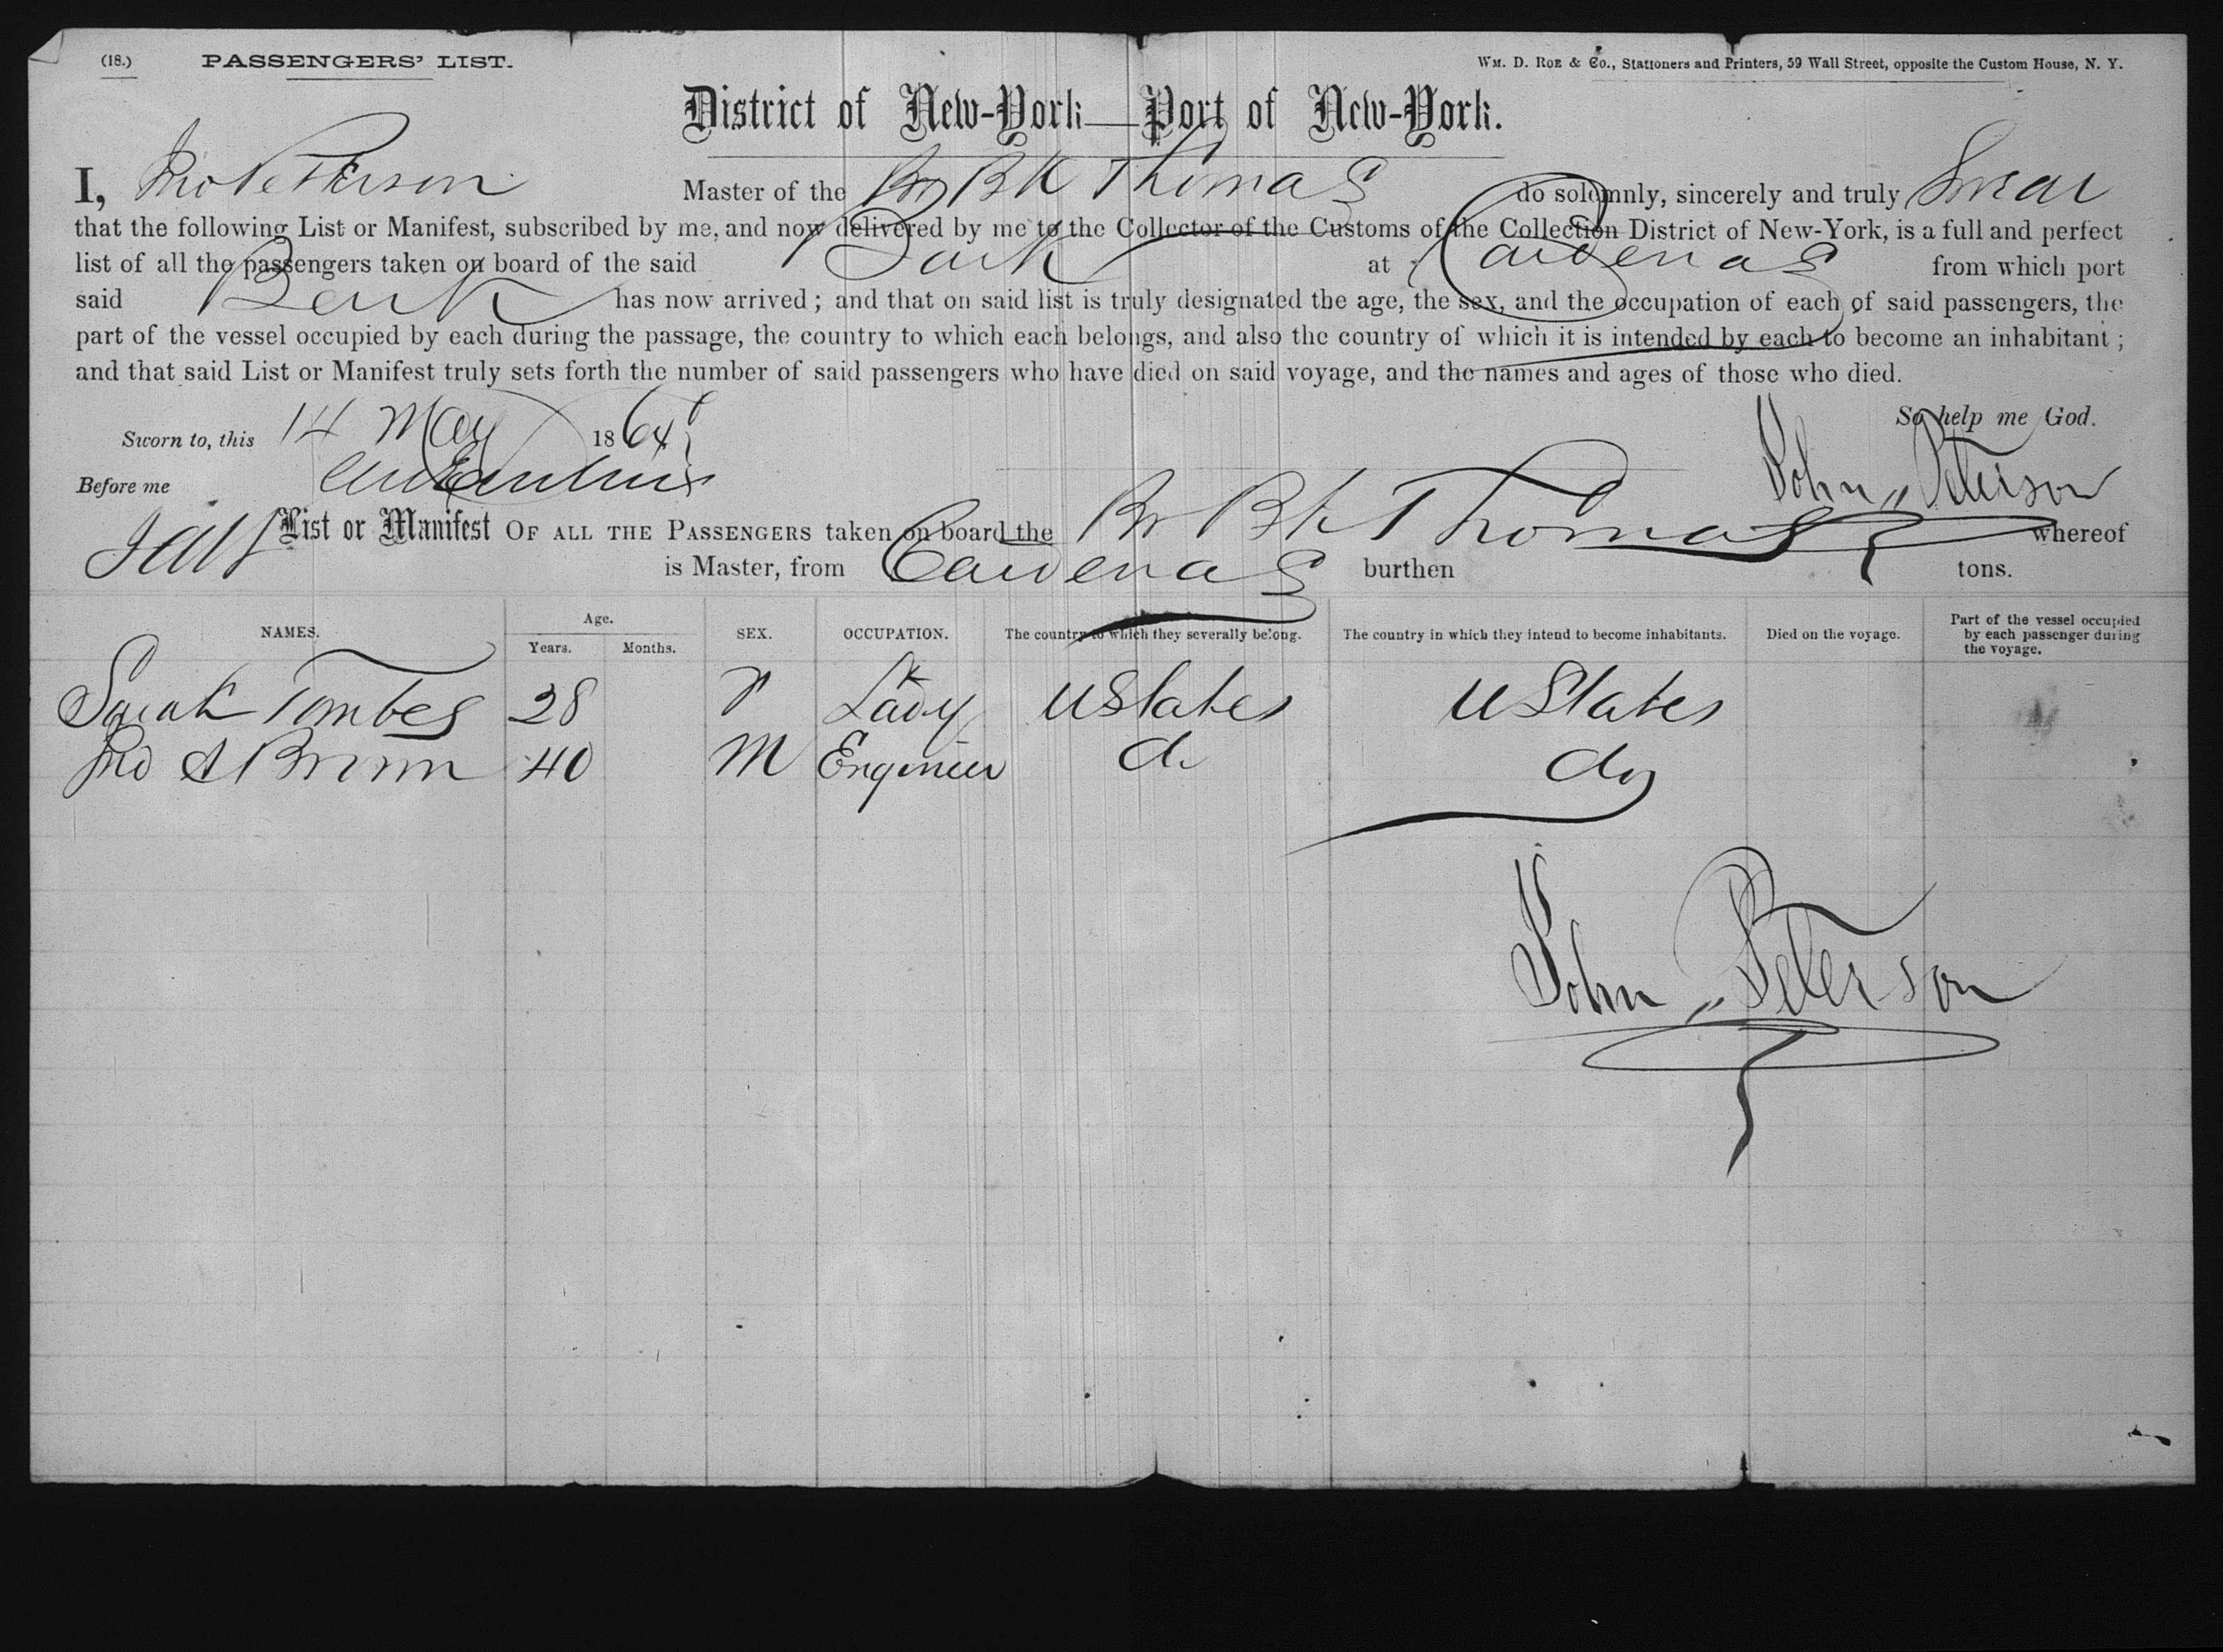 (18.) PASSENGERS' LIST. WM. D. ROE & Co., Stationers and Printers, 59 Wall Street, opposite the Custom House, N. Y.
District of New-York—Port of New-York.
I, Jno Peterson Master of the Br Bk Thomas do solemnly, sincerely and truly Swear
that the following List or Manifest, subscribed by me, and now delivered by me to the Collector of the Customs of the Collection District of New-York, is a full and perfect
list of all the passengers taken on board of the said Bark at Cardenas from which port
said Bark has now arrived; and that on said list is truly designated the age, the sex, and the occupation of each of said passengers, the
part of the vessel occupied by each during the passage, the country to which each belongs, and also the country of which it is intended by each to become an inhabitant;
and that said List or Manifest truly sets forth the number of said passengers who have died on said voyage, and the names and ages of those who died.
So help me God.
Sworn to, this 14 May 1864
Before me
John Peterson
List or Manifest OF ALL THE PASSENGERS taken on board the Br Bk Thomas whereof
is Master, from Cardenas burthen tons.
NAMES. Age. Years. Months. SEX. OCCUPATION. The country to which they severally belong. The country in which they intend to become inhabitants. Died on the voyage. Part of the vessel occupied by each passenger during the voyage.
Sarah Tombes 28 Lady U States U States
Jno A Brinn 40 M Engineer do do
John Peterson